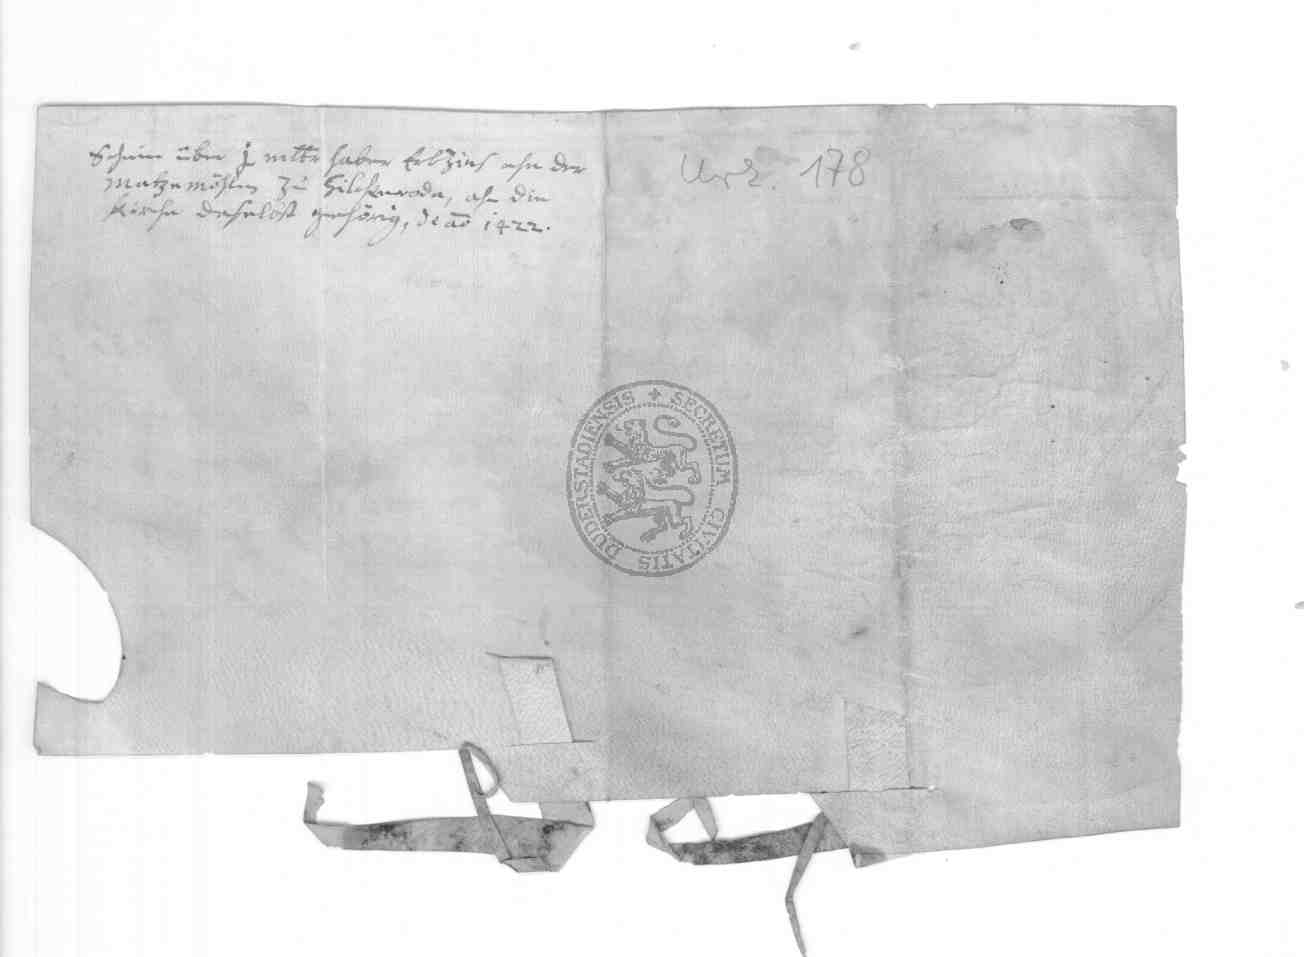 Schein über j mltr haber Erbzins ahn der
Matzemöhlen zu Hilckerode, ahn die
Kirche daselbst gehörig, de aõ 1422.
Urk. 178
SECRETUM CIVITATIS DUDERSTADIENSIS